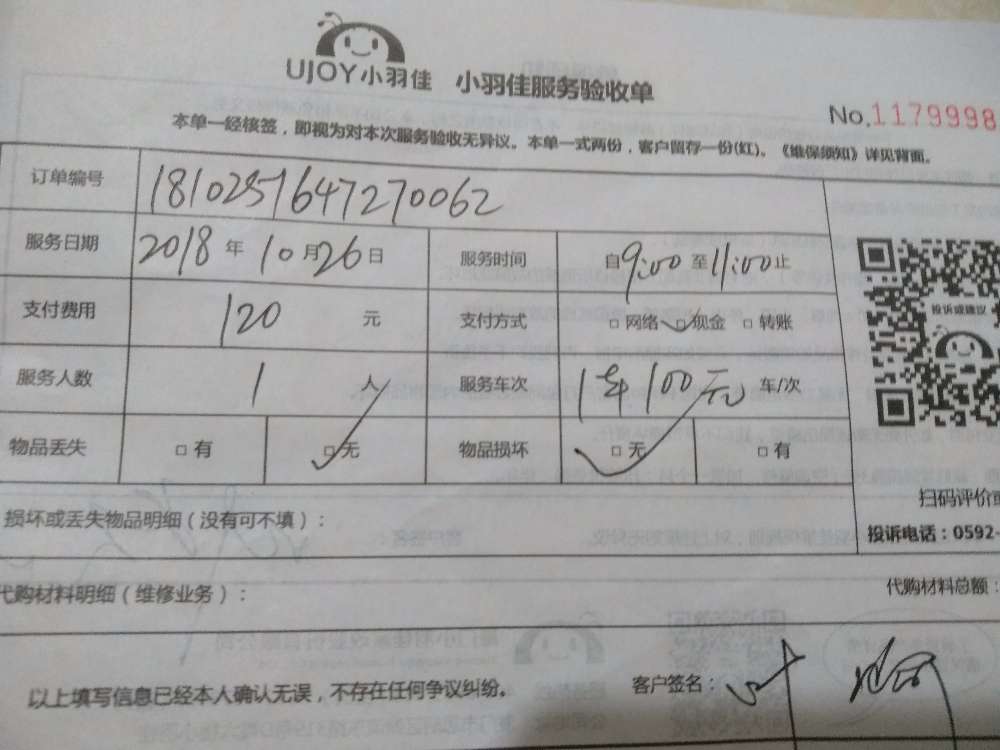 UJOY小羽佳 小羽佳服务验收单
No.1179998
本单一经核签，即视为对本次服务验收无异议。本单一式两份，客户留存一份(红)。《维保须知》详见背面。
订单编号 1810251647270062
服务日期 2018年10月26日 服务时间 自9:00至11:00止
支付费用 120 元 支付方式 □网络 □现金 □转账
服务人数 1 人 服务车次 1年100元 车/次
物品丢失 □有 □无 物品损坏 □无 □有
投诉或建议
扫码评价或
损坏或丢失物品明细（没有可不填）：
投诉电话：0592-
代购材料明细（维修业务）：
代购材料总额：
以上填写信息已经本人确认无误，不存在任何争议纠纷。
客户签名：叶